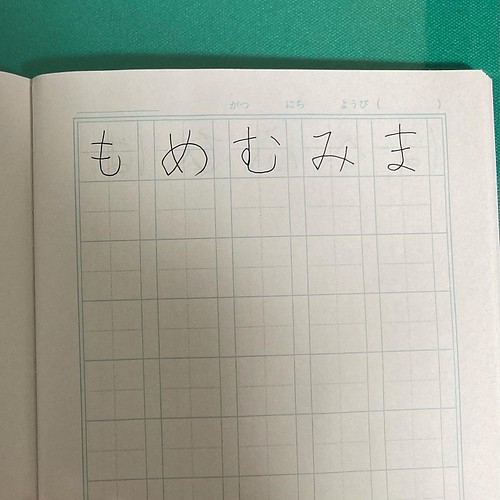 がつ にち ようび（ ）
ま
み
む
め
も